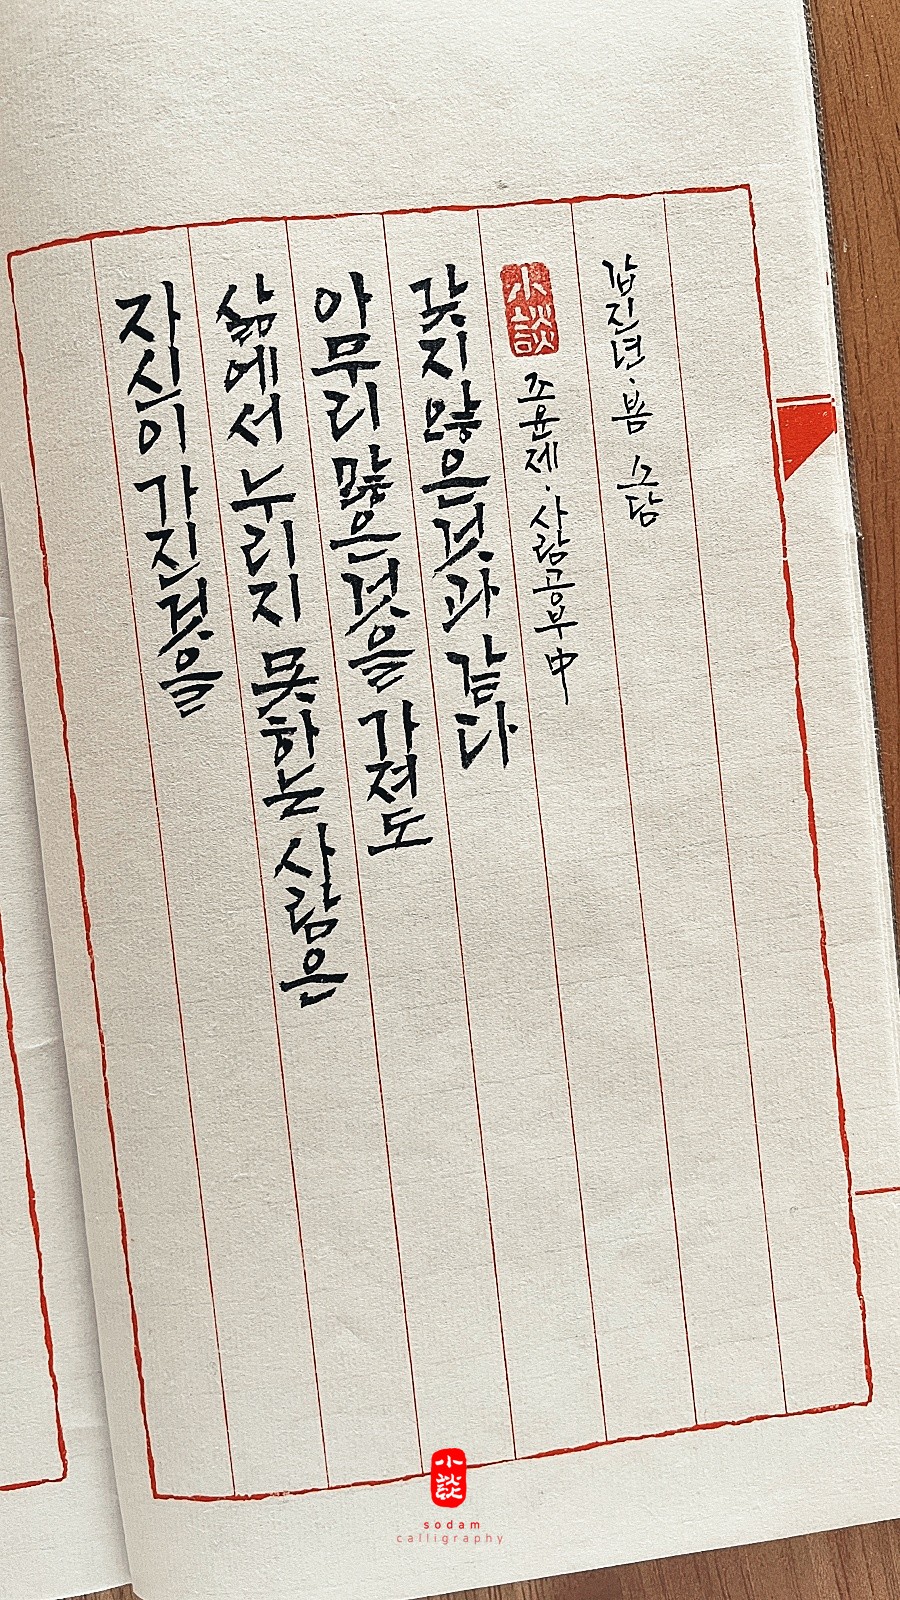 자신이 가진것을
삶에서 누리지 못하는 사람은
아무리 많은것을 가져도
갖지 않은것과 같다
小談
조윤제·사람공부 中
갑진년·봄 소담
小談
sodam
calligraphy